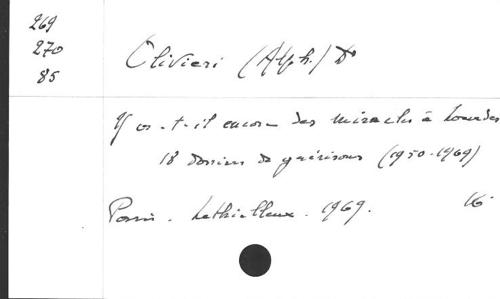 269
270
85
Olivieri (Alph.) Dr
Y a-t-il encore des miracles à Lourdes
18 dossiers de guérisons (1950-1969)
Paris. Lethielleux. 1969.